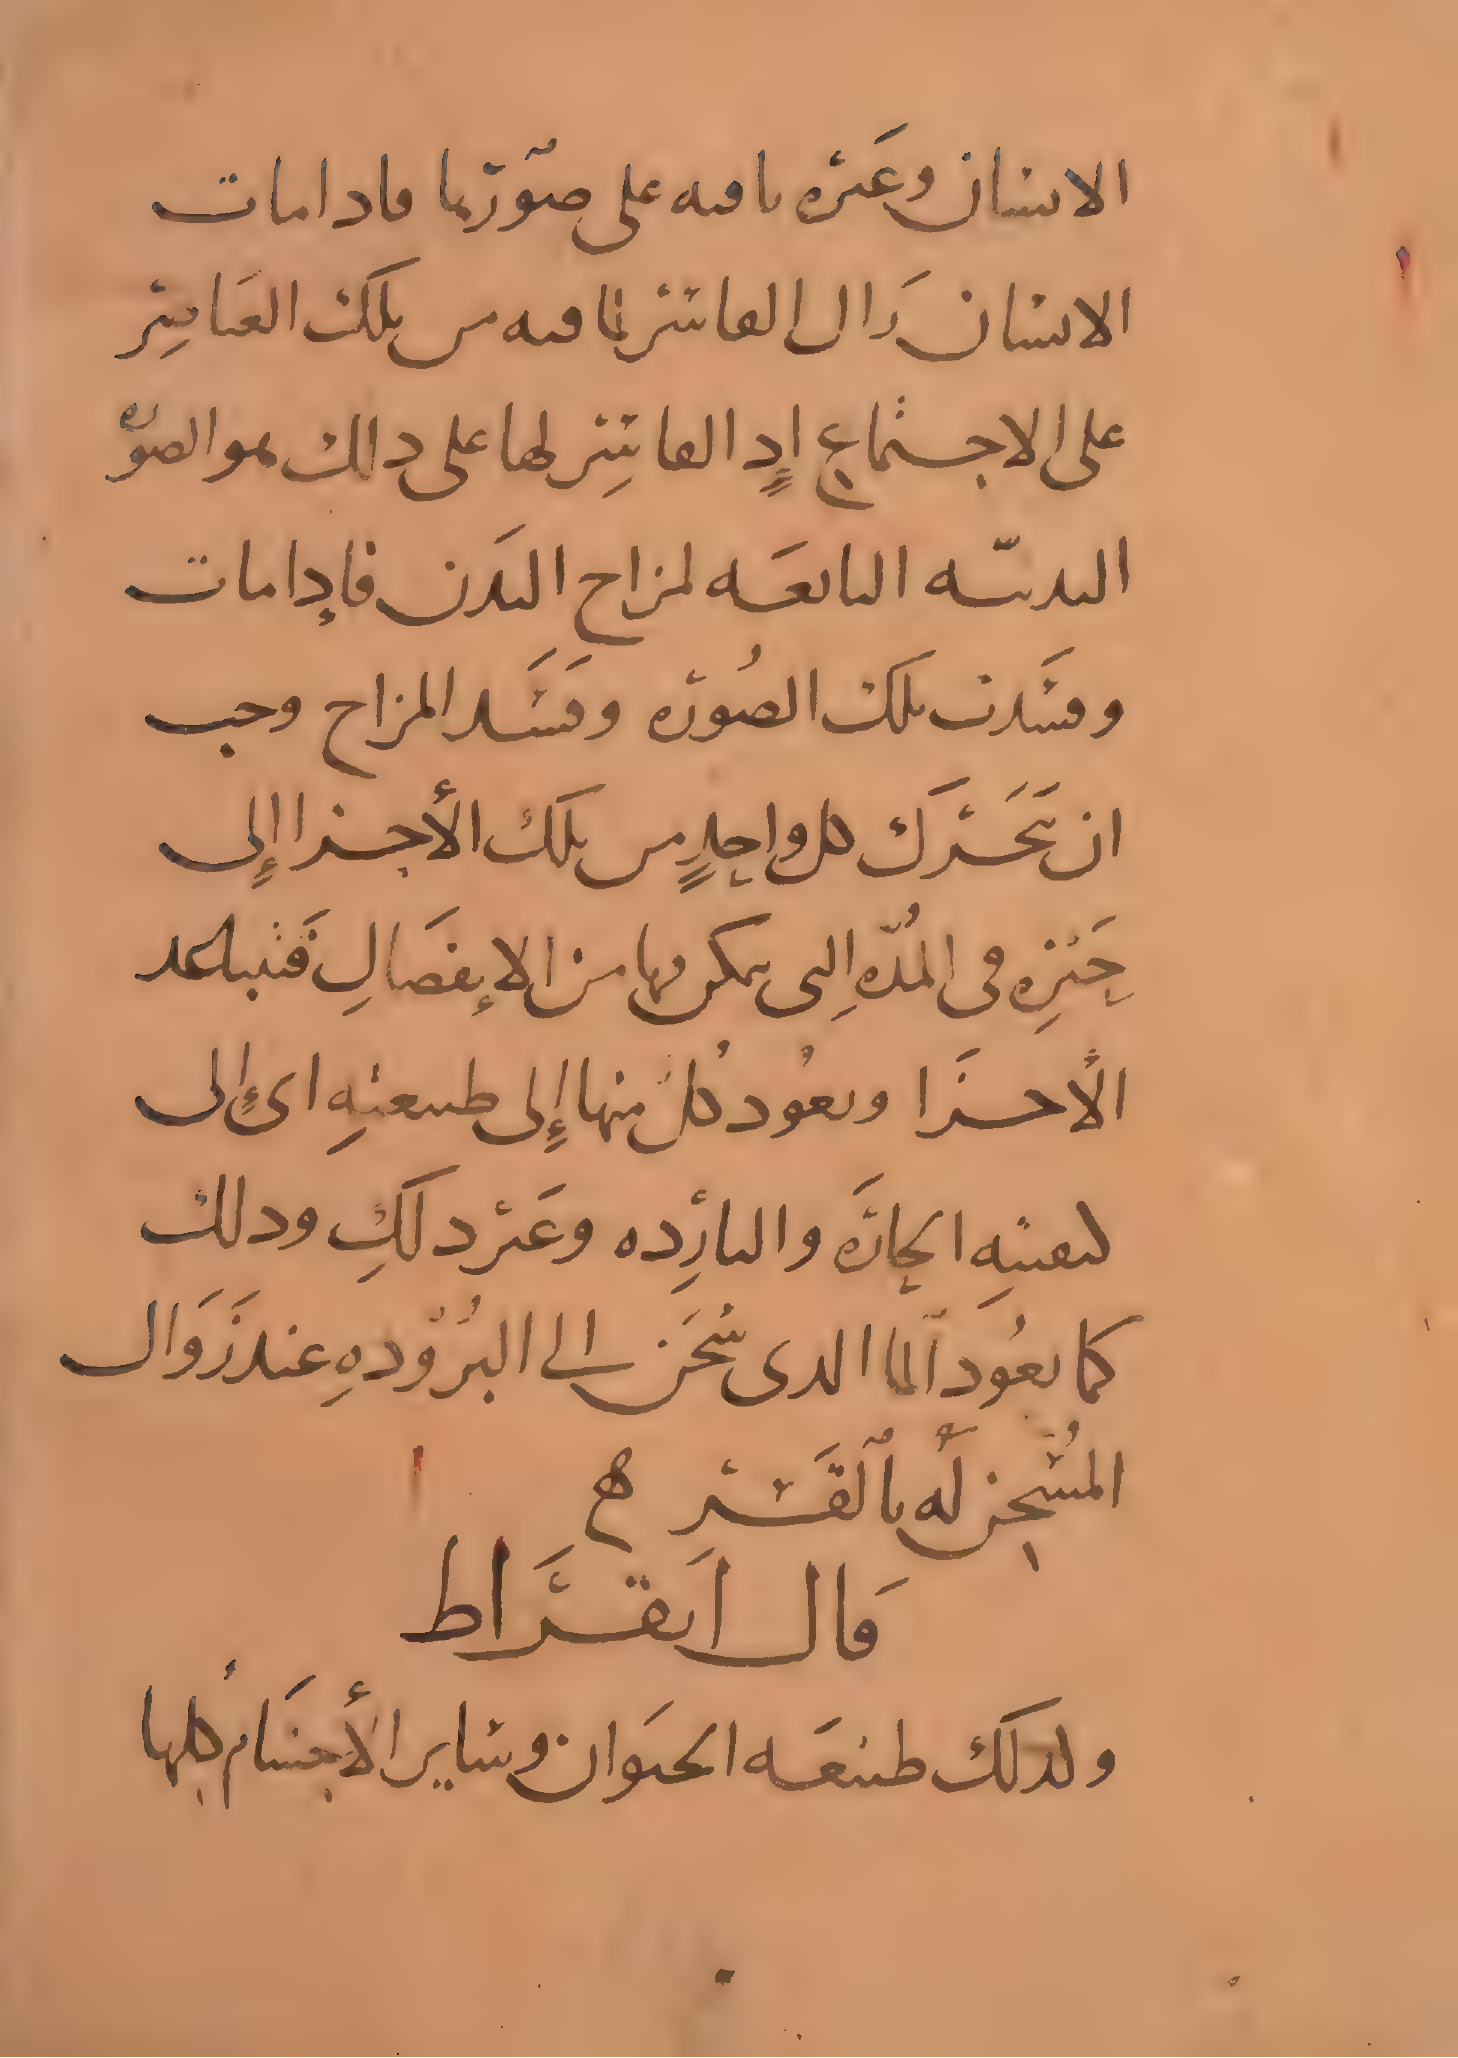 الانسان وغيره باقيه على صورتها فاذا مات
الانسان زال القاسر لما فيه من تلك العناصر
على الاجتماع إذ القاسر لها على ذلك هو الصوره
البدنيّه التابعَه لمزاج البَدَن فاذا مات
وفسَدت تلك الصُوره وفسَد المزاج وجب
ان يتحَرَك كل واحِدٍ من تلك الأجزا إلى
حَيِّزِه في المُدّه التي يمكن فيها من الإنفصَالِ فتَتباعد
الأجزَا ويعُود كُل منها إلى طبيعتِهِ اي إلى
كيفيتِهِ الحارَّه والبارِده وغَير ذلكِ وذلك
كما يعُود المآ الذي سُخَن الى البُرُودهِ عند زَوَال
المُسَخِن لَهُ بالقَسْرِ ه
قَال ابقرَاط
ولذلك طبيعَه الحيوَان وساير الأجسَام كُلها